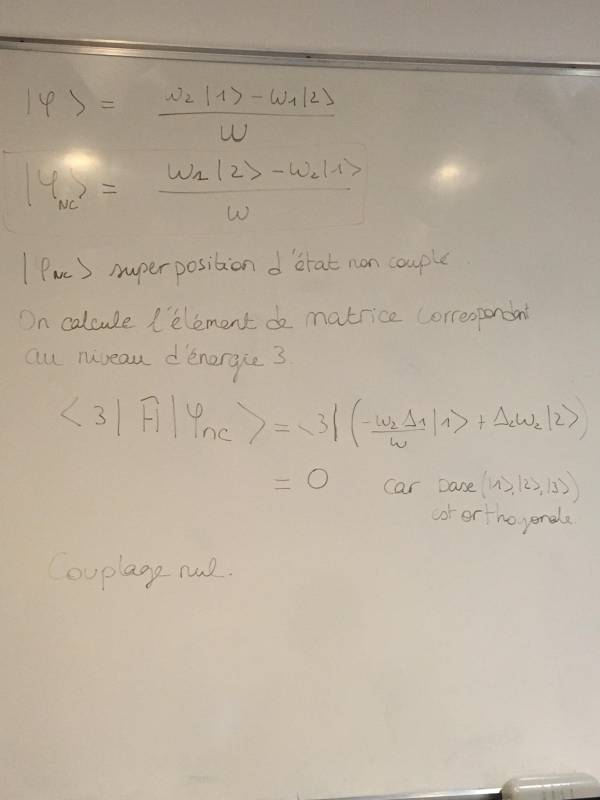 |φ> = (ω₂|1> - ω₁|2>)/ω
|φ_NC> = (ω₁|2> - ω₂|1>)/ω
|φ_NC> superposition d'état non couplé.
On calcule l'élément de matrice correspondant
au niveau d'énergie 3.
<3|Ĥ|φ_nc> = <3|(-ω₂Δ₁/ω |1> + Δ₂ω₂|2>)
= 0 car base (|1>,|2>,|3>)
est orthogonale.
Couplage nul.